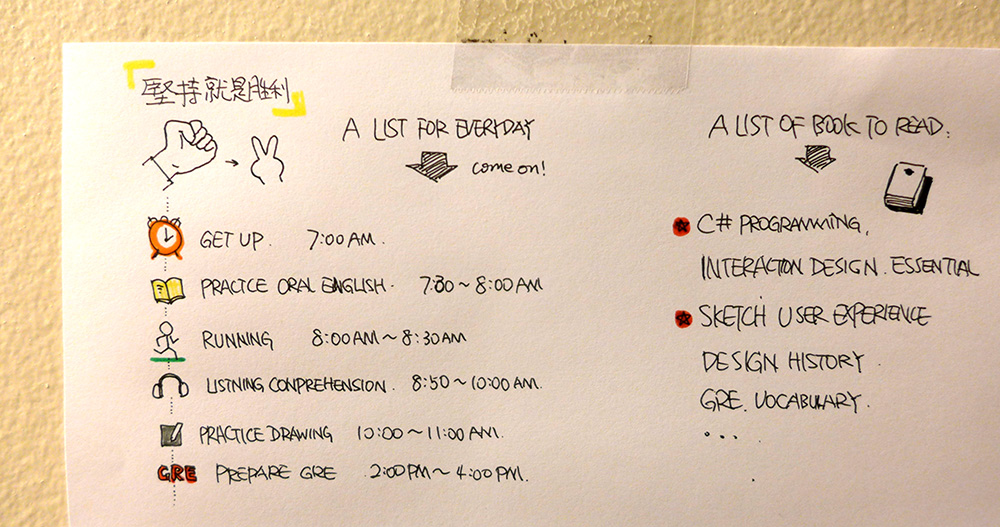 堅持就是胜利
A LIST FOR EVERYDAY
come on!
GET UP. 7:00 AM.
PRACTCE ORAL ENGLISH. 7:30~8:00AM
RUNNING 8:00AM~8:30AM
LISTNING CONPREHENSION. 8:50~10:00AM.
PRACTICE DRAWING 10:00~11:00 AM.
GRE PREPARE GRE 2:00PM~4:00PM.
A LIST OF BOOK TO READ:
C# PROGRAMMING,
INTERACTON DESIGN. ESSENTIAL
SKETCH USER EXPERIENCE
DESIGN HISTORY
GRE. VOCABULARY.
...